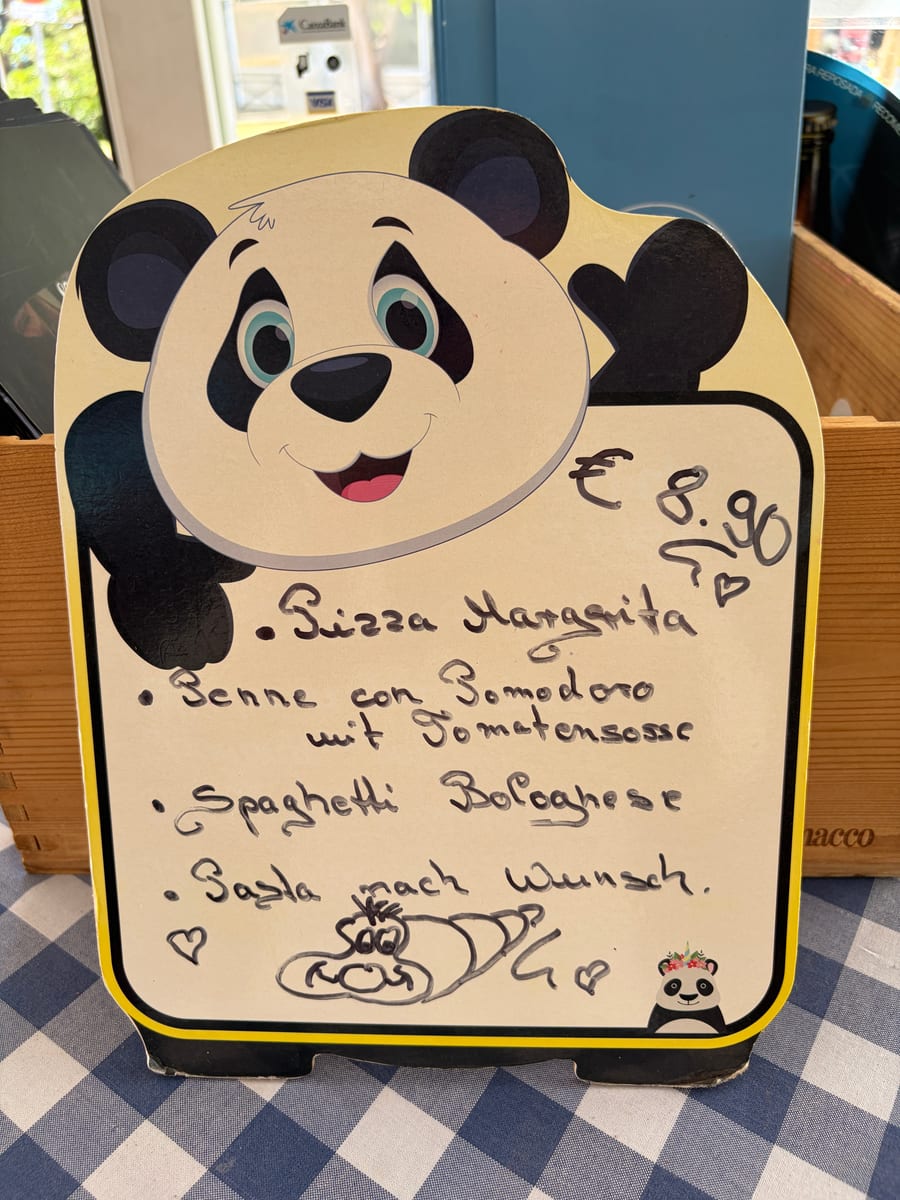 CaixaBank
VISA
RA REPOSADA
€ 8.90
• Pizza Margarita
• Penne con Pomodoro
mit Tomatensosse
• Spaghetti Bolognese
• Pasta nach Wunsch.
nacco